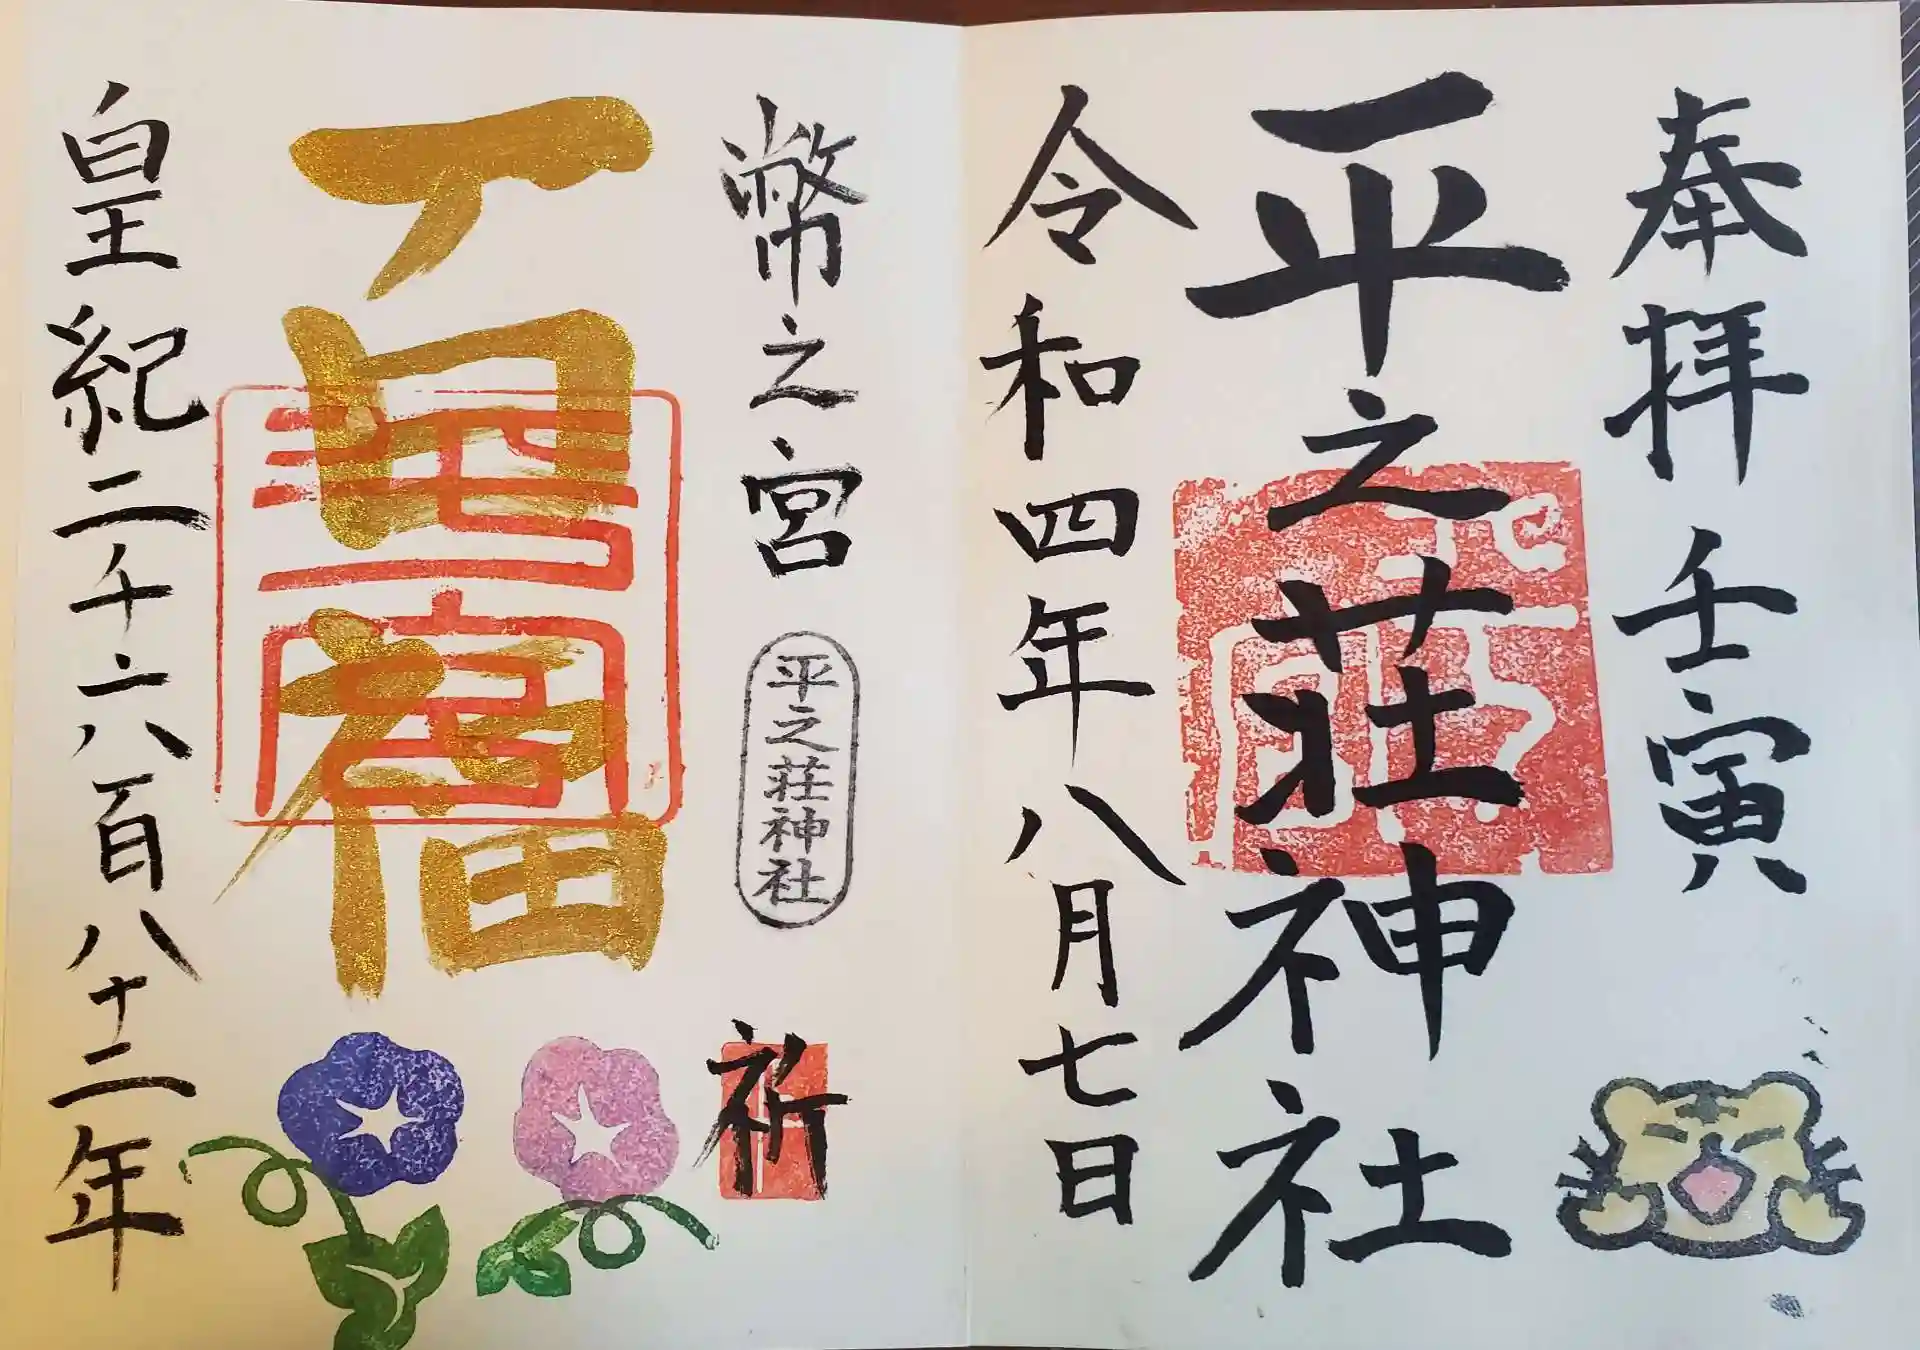 奉拝 壬寅
平之莊神社
令和四年八月七日
幣之宮
平之荘神社
祈
百福
皇紀二千六百八十二年